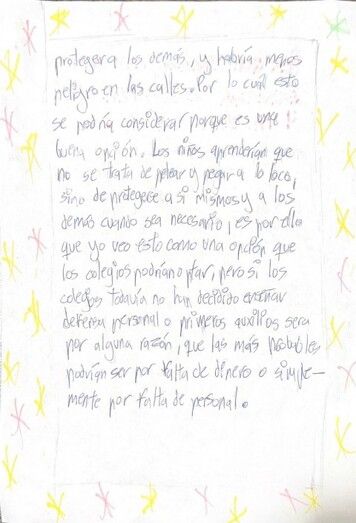 proteger a los demás, y habría menos
peligro en las calles. Por lo cual esto
se podría considerar porque es una
buena opción. Los niños aprenderían que
no se trata de pelear y pegar a lo loco,
sino de protegerse a si mismos y a los
demás cuando sea necesario, es por ello
que yo veo esto como una opción que
los colegios podrían optar, pero si los
colegios todavía no han decidido enseñar
defensa personal o primeros auxilios sera
por alguna razón, que las más probables
podrían ser por falta de dinero o simple-
mente por falta de personal.